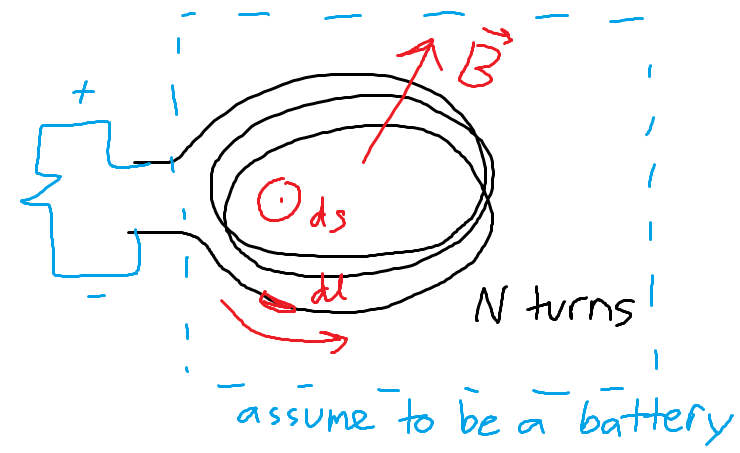 +
B⃗
ds
dl
N turns
−
assume to be a battery